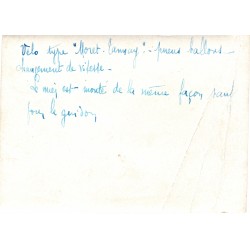 Vélo type "Moret-Lansay" - pneus ballons -
changement de vitesse -
Le mien est monté de la même façon sauf
pour le guidon